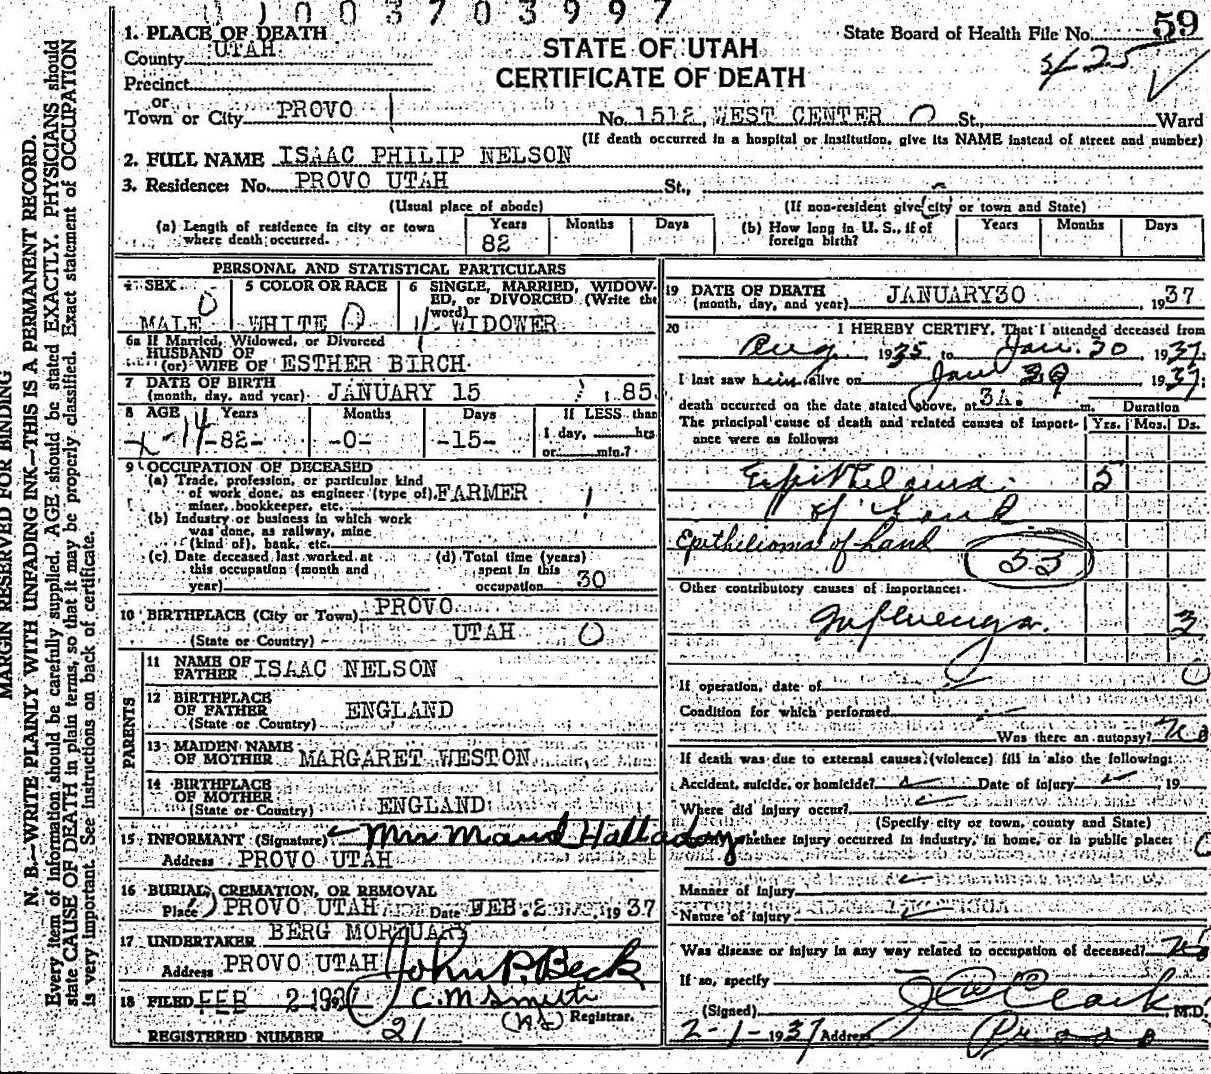 0 1 0 0 3 7 0 3 9 9 7
59
State Board of Health File No.
425
STATE OF UTAH
CERTIFICATE OF DEATH
1. PLACE OF DEATH
County UTAH
Precinct
or
Town or City PROVO No. 1512 WEST CENTER St., Ward
(If death occurred in a hospital or institution, give its NAME instead of street and number)
2. FULL NAME ISAAC PHILIP NELSON
3. Residence: No. PROVO UTAH St.,
(Usual place of abode) (If non-resident give city or town and State)
(a) Length of residence in city or town where death occurred. Years 82 Months Days
(b) How long in U. S., if of foreign birth? Years Months Days
PERSONAL AND STATISTICAL PARTICULARS
4 SEX MALE
5 COLOR OR RACE WHITE
6 SINGLE, MARRIED, WIDOWED, or DIVORCED (Write the word) WIDOWER
6a If Married, Widowed, or Divorced
HUSBAND OF
(or) WIFE OF ESTHER BIRCH
7 DATE OF BIRTH
(month, day, and year) JANUARY 15 85
8 AGE Years -82- Months -0- Days -15- If LESS than 1 day, hrs or min.?
9 OCCUPATION OF DECEASED
(a) Trade, profession, or particular kind
of work done, as engineer (type of), FARMER
miner, bookkeeper, etc.
(b) Industry or business in which work
was done, as railway, mine
(kind of), bank, etc.
(c) Date deceased last worked at
this occupation (month and
year)
(d) Total time (years)
spent in this
occupation 30
10 BIRTHPLACE (City or Town) PROVO
(State or Country) UTAH
PARENTS
11 NAME OF FATHER ISAAC NELSON
12 BIRTHPLACE OF FATHER
(State or Country) ENGLAND
13 MAIDEN NAME OF MOTHER MARGARET WESTON
14 BIRTHPLACE OF MOTHER
(State or Country) ENGLAND
15 INFORMANT (Signature) Mrs Maud Halladay
Address PROVO UTAH
16 BURIAL, CREMATION, OR REMOVAL
Place PROVO UTAH Date FEB. 2 1937
17 UNDERTAKER BERG MORTUARY
Address PROVO UTAH John P. Beck
18 FILED FEB 2 193 C. M Smith
Registrar.
REGISTERED NUMBER 21
19 DATE OF DEATH
(month, day, and year) JANUARY 30 1937
20 I HEREBY CERTIFY, That I attended deceased from
Aug. 1935 to Jan. 30 1937
I last saw him alive on Jan 1937
death occurred on the date stated above, at 3A. m. Duration
The principal cause of death and related causes of importance were as follows: Yrs. Mos. Ds.
Epithelioma 5
of hand
Epithelioma of hand
53
Other contributory causes of importance:
Influenza. 3
If operation, date of
Condition for which performed
Was there an autopsy? No
If death was due to external causes (violence) fill in also the following:
Accident, suicide, or homicide? Date of injury 19
Where did injury occur?
(Specify city or town, county and State)
whether injury occurred in industry, in home, or in public place:
Manner of injury
Nature of injury
Was disease or injury in any way related to occupation of deceased? No
If so, specify
(Signed) Clark M.D.
2-1-1937 Address Provo
MARGIN RESERVED FOR BINDING
N. B.—WRITE PLAINLY WITH UNFADING INK—THIS IS A PERMANENT RECORD.
Every item of information should be carefully supplied. AGE should be stated EXACTLY. PHYSICIANS should
state CAUSE OF DEATH in plain terms, so that it may be properly classified. Exact statement of OCCUPATION
is very important. See Instructions on back of certificate.